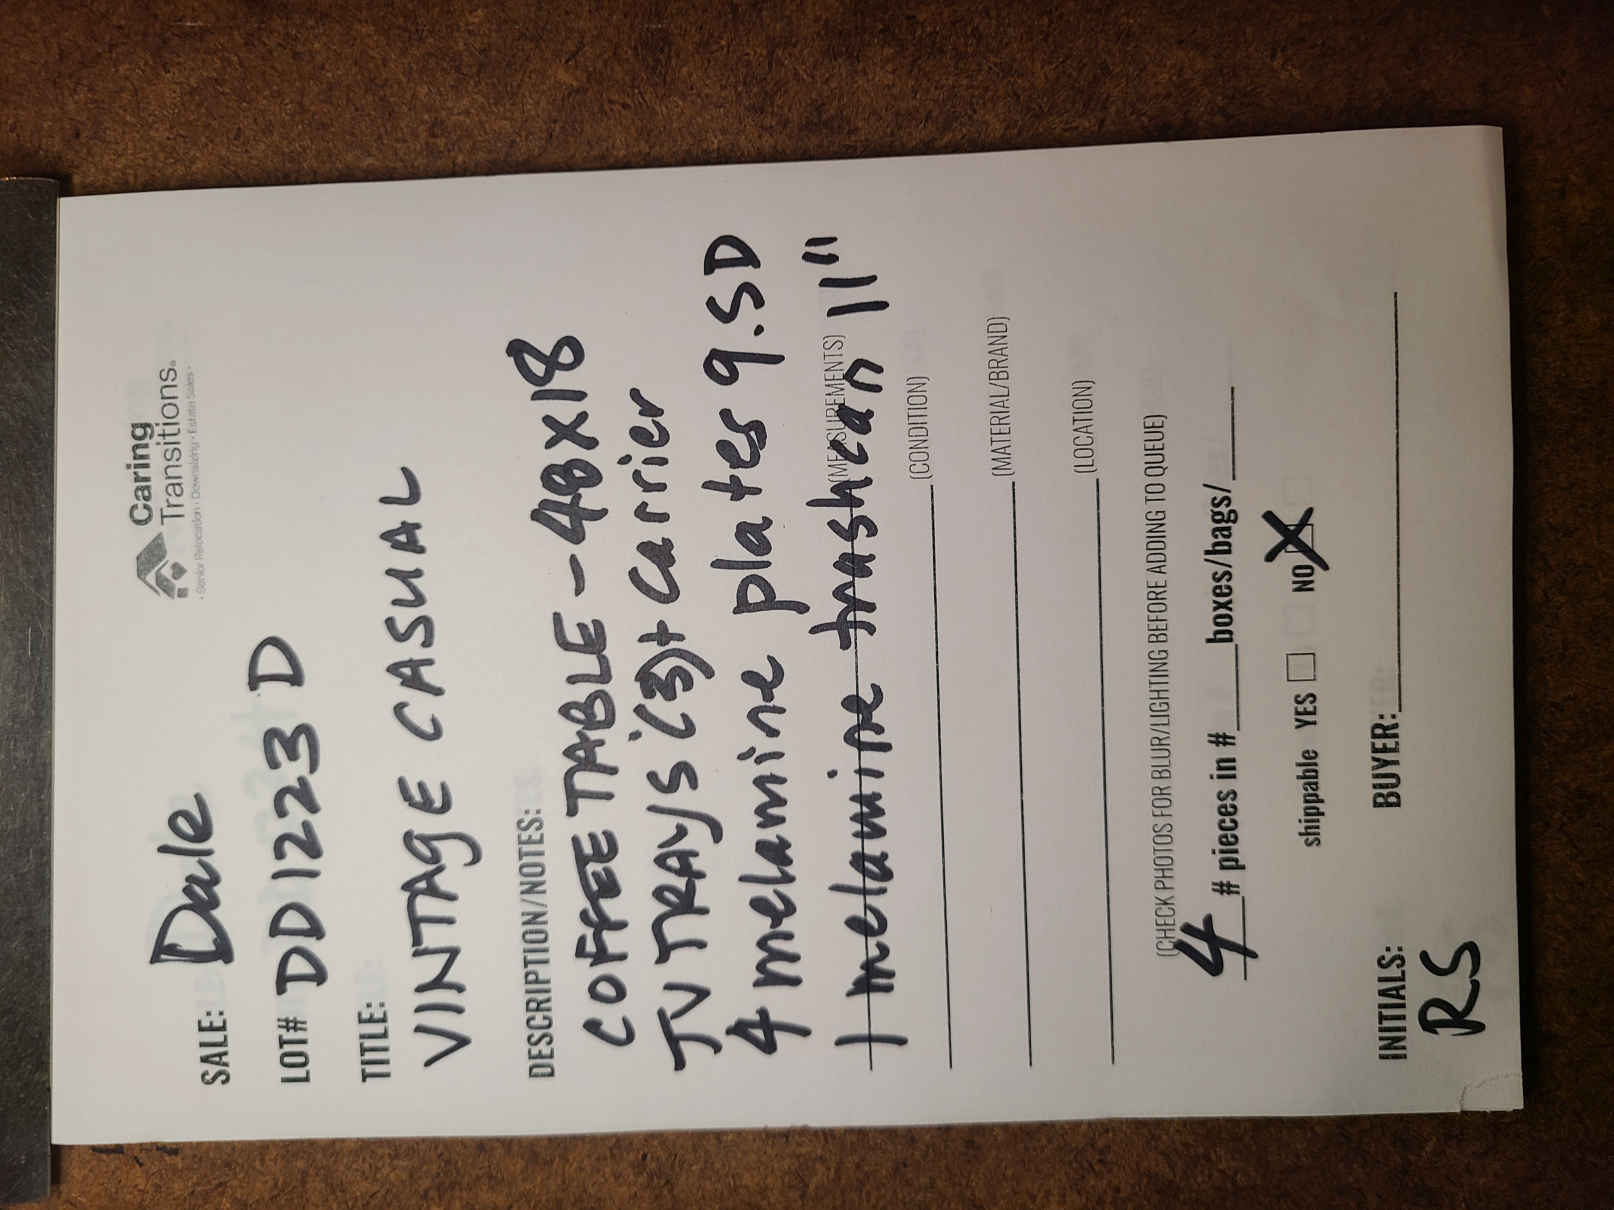 Caring
Transitions®
• Senior Relocation • Downsizing • Estate Sales •
SALE: Dale
LOT# DD1223D
TITLE:
VINTAGE CASUAL
DESCRIPTION/NOTES:
COFFEE TABLE - 48x18
TV TRAYS (3)+ Carrier
4 melamine plates 9.5D
1 melamine trashcan 11"
(MEASUREMENTS)
(CONDITION)
(MATERIAL/BRAND)
(LOCATION)
(CHECK PHOTOS FOR BLUR/LIGHTING BEFORE ADDING TO QUEUE)
4 # pieces in #____boxes/bags/____
shippable YES ☐ NO X
INITIALS: BUYER:
RS